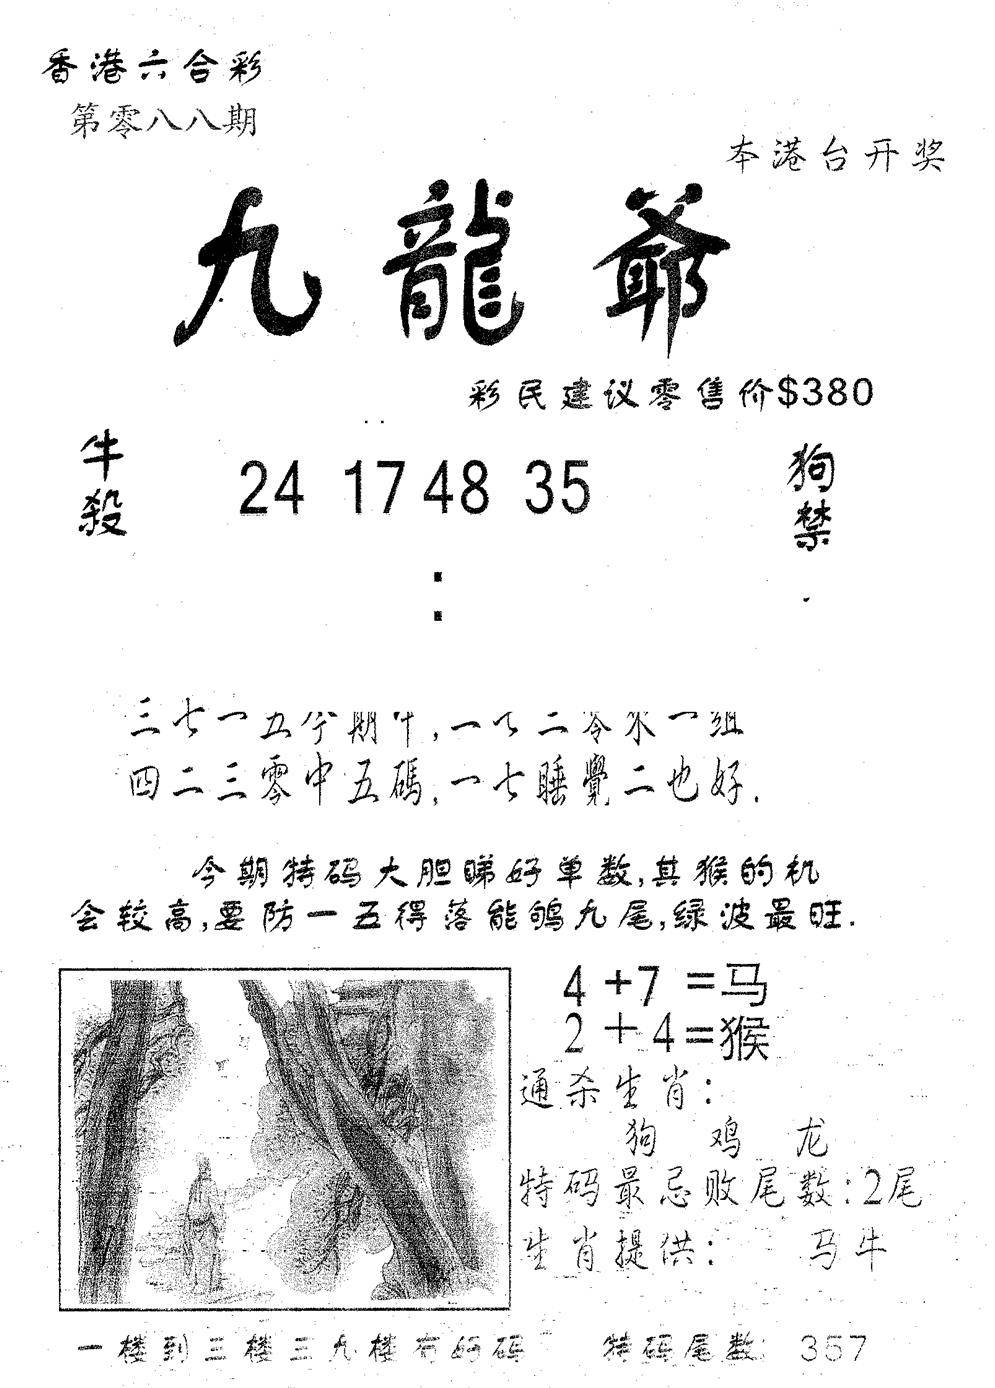 香港六合彩
第零八八期
本港台开奖
九龍爺
彩民建议零售价$380
牛殺
24 17 48 35
狗禁
:
三七一五今期中,一七二零来一组
四二三零中五碼,一七睡覺二也好.
今期特码大胆睇好单数,其猴的机
会较高,要防一五得落能鸲九尾,绿波最旺.
4+7=马
2+4=猴
通杀生肖:
狗 鸡 龙
特码最忌败尾数:2尾
生肖提供: 马牛
一楼到三楼三九楼有好码 特码尾数: 357